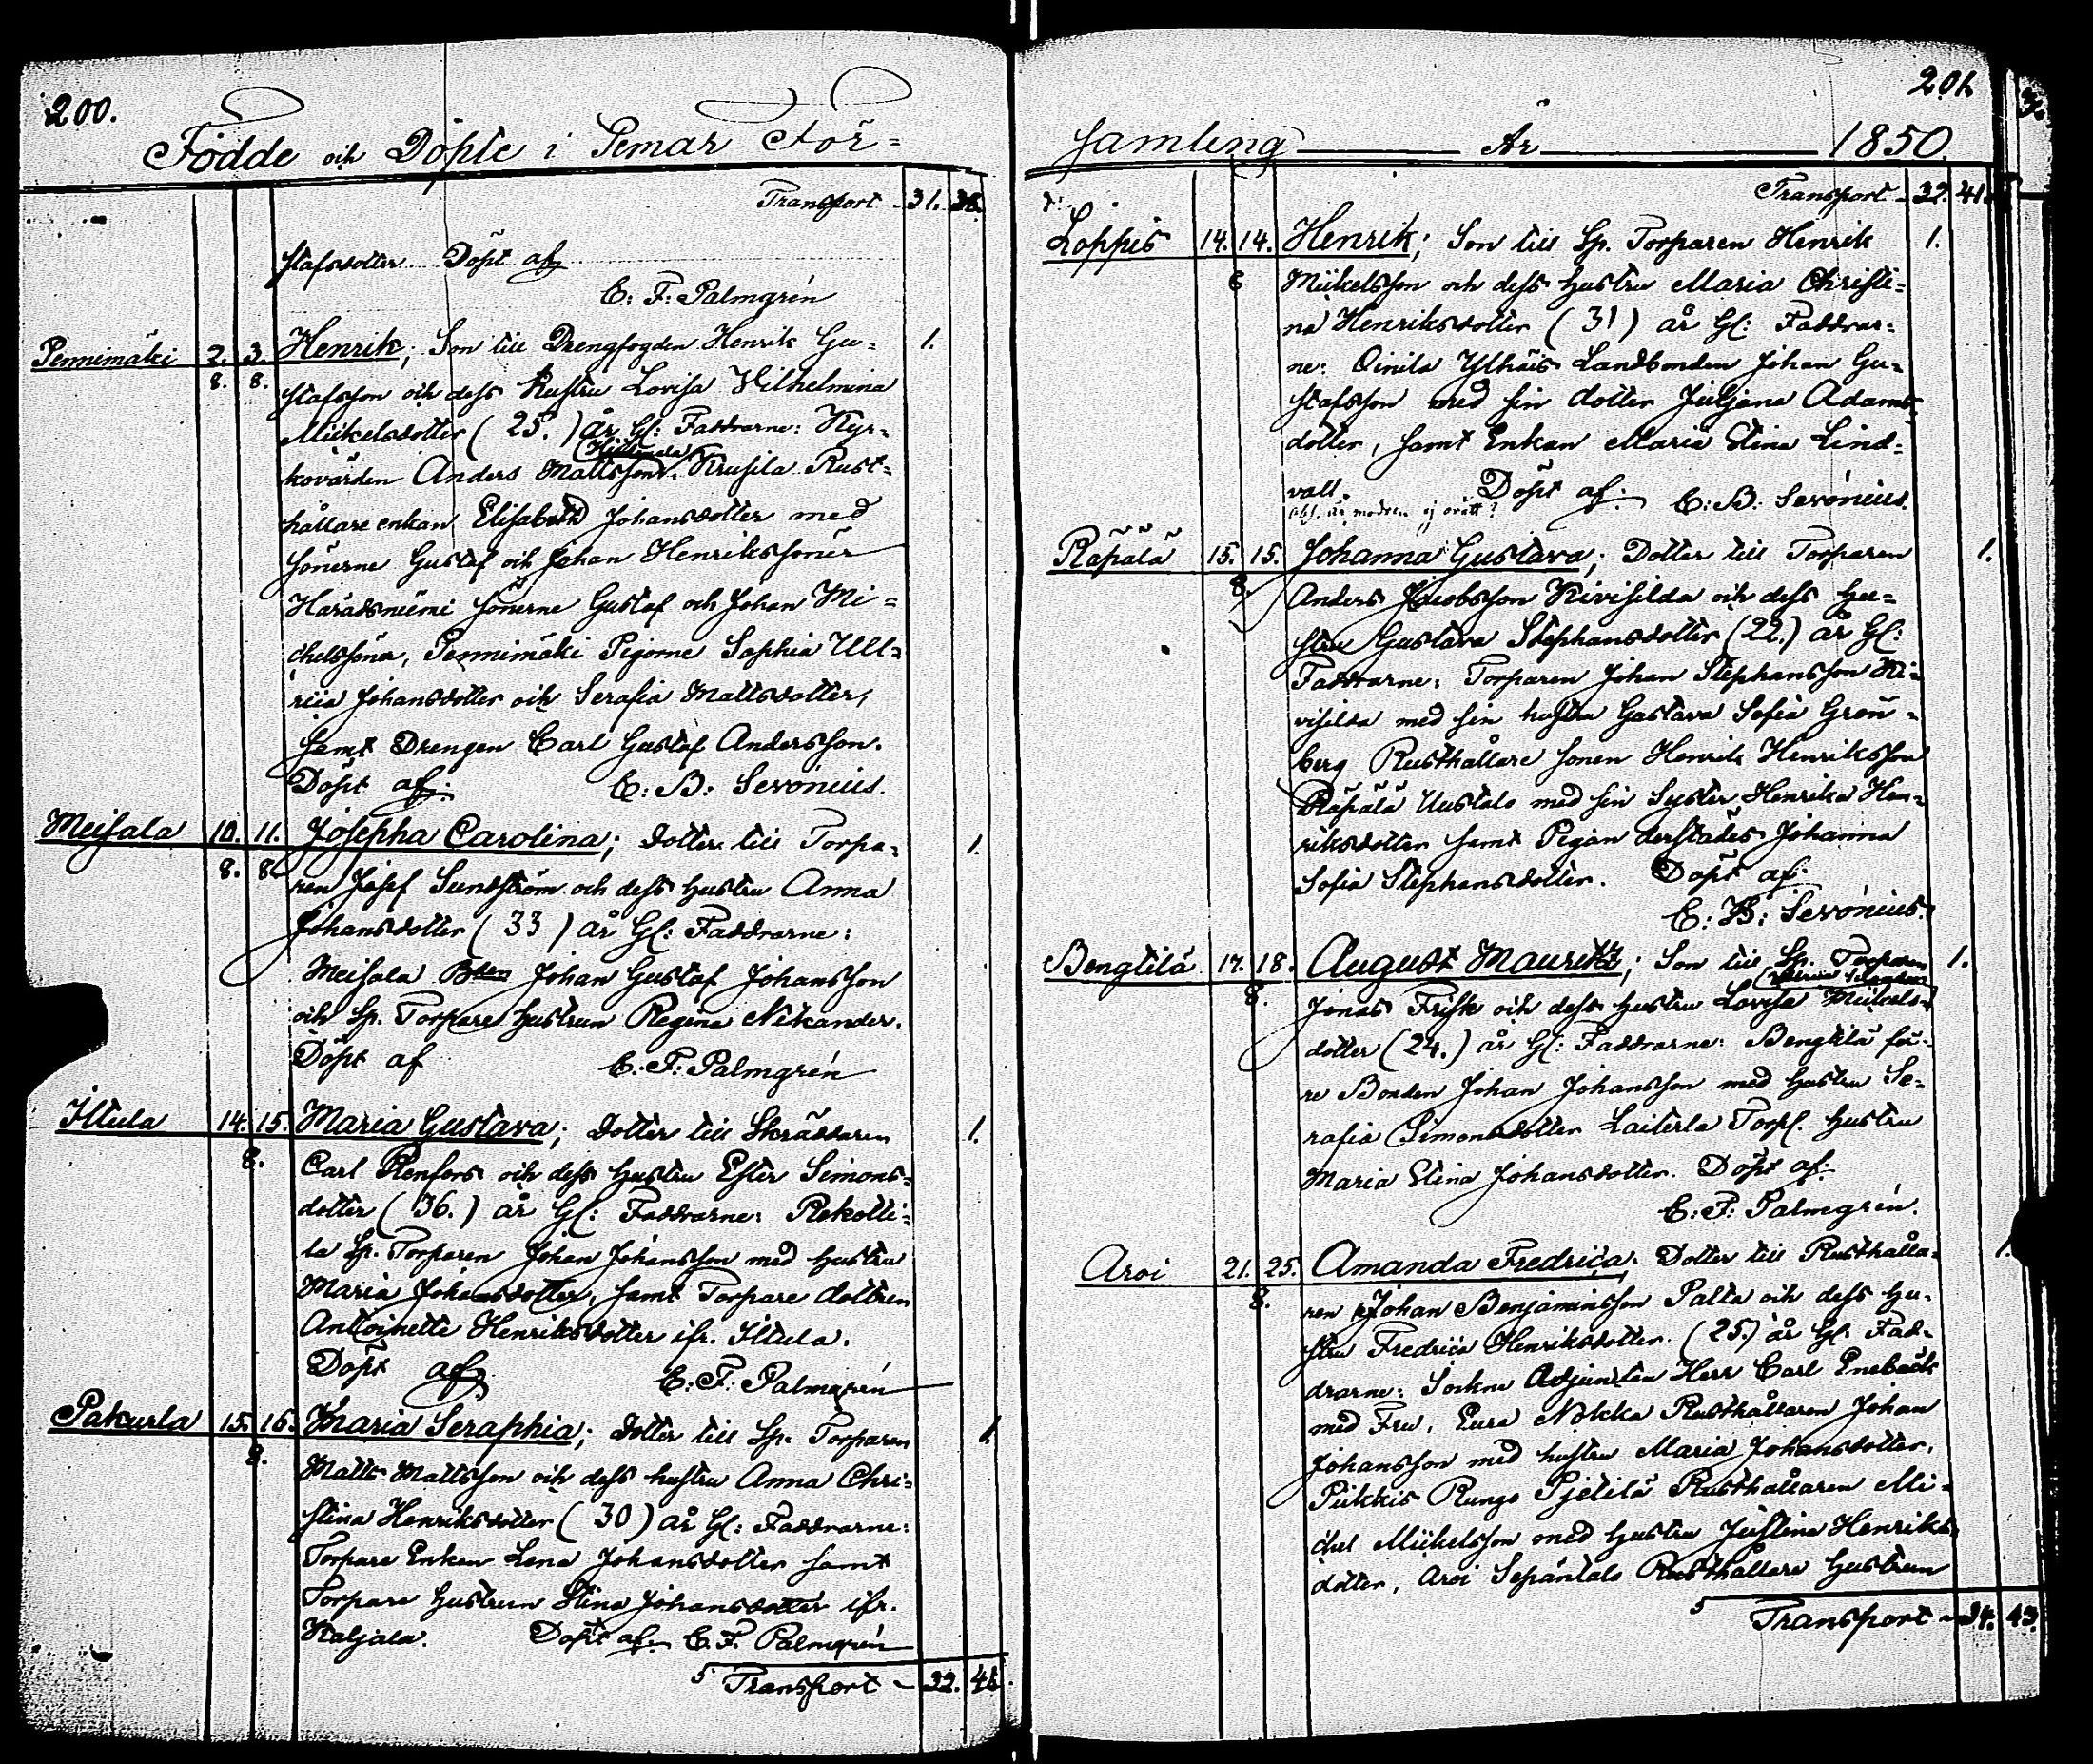 200.
Födde och Döpte i Pemar För=
Transport - 31. 38.
stafsdotter. Döpt af
C: F: Palmgrén
Pennimäki 2. 3. Henrik; Son till Drengfogden Henrik Gu= 1.
8. 8. stafsson och dess Hustru Lovisa Wilhelmina
Mickelsdotter (25.) år Gl: Faddrarne: Kyr=
kovärden Anders Mattsson Krusila Rust=
hållare enkan Elisabeth Johansdotter med
Sönerne Gustaf och Johan Henrikssöner
Haradsniemi Sönerne Gustaf och Johan Mi=
chelssöner, Pennimäki Pigorne Sophia Ull=
rica Johansdotter och Serafia Mattsdotter,
samt Drengen Carl Gustaf Andersson.
Döpt af: C: B: Seronius.
Meisala 10. 11. Josepha Carolina; Dotter till Torpa= 1.
8. 8. ren Josef Sundström och dess Hustru Anna
Johansdotter (33) år Gl: Faddrarne:
Meisala Bden Johan Gustaf Johansson
och Sp. Torpare Hustrun Regina Nikander.
Döpt af C: F: Palmgrén
Iltula 14. 15. Maria Gustava; Dotter till Skräddaren 1.
8. Carl Renfors och dess Hustru Ester Simons=
dotter (36.) år Gl: Faddrarne: Rekotti=
la Sp. Torparen Johan Johansson med Hustru
Maria Johansdotter, samt Torpare dottren
Antoinette Henriksdotter ifr. Iltula.
Döpt af C: F: Palmgrén
Pakurla 15. 16. Maria Seraphia; Dotter till Sp. Torparen 1.
8. Matts Mattsson och dess hustru Anna Chri=
stina Henriksdotter (30) år Gl: Faddrarne:
Torpare Enkan Lena Johansdotter samt
Torpare Hustrun Stina Johansdotter ifr.
Kaljala. Döpt af C. F. Palmgrén
5 Transport - 32. 41.
201.
samling År 1850.
Transport - 32. 41.
Loppis 14. 14. Henrik; Son till Sp. Torparen Henrik 1.
8 Mickelsson och dess Hustru Maria Christi=
na Henriksdotter (31) år Gl: Faddrar=
ne: Qinila Ylhäis Landbonden Johan Gu=
stafsson med sin dotter Juljana Adams
dotter, samt Enkan Maria Stina Lind=
vall. Döpt af: C: B: Seronius.
är modren ej orätt?
Räpälä 15. 15. Johanna Gustava; Dotter till Torparen 1.
8. Anders Jacobsson Kivisilda och dess Hu=
stru Gustava Stephansdotter (22.) år Gl:
Faddrarne: Torparen Johan Stephansson Ki=
visilda med sin hustru Gustava Sofia Grön=
berg Rusthållare Sonen Henrik Henriksson
Räpälä Uustalo med sin Syster Henrika Hen=
riksdotter samt Pigan derstädes Johanna
Sofia Stephansdotter. Döpt af:
C: B: Seronius.
Bengtilä 17. 18. August Mauritz; Son till Sp. Torparen 1.
8. Jonas Frisk och dess hustru Lovisa Mickels=
dotter (24.) år Gl: Faddrarne: Bengtilä fö=
re Bonden Johan Johansson med Hustru Se=
rafia Simonsdotter Laiterla Torp. Hustru
Maria Stina Johansdotter. Döpt af:
C: F: Palmgrén.
Aroi 21. 25. Amanda Fredrica. Dotter till Rusthålla= 1.
8. ren Johan Benjaminsson Palta och dess Hu=
stru Fredrica Henriksdotter. (25.) år Gl. Fad=
drarne: Sockne Adjuncten Herr Carl Enebäck
med Fru, Eura Nokka Rusthållaren Johan
Johansson med hustru Maria Johansdotter,
Piikkis Rungo Pjetilä Rusthållaren Mi=
chel Mickelsson med Hustru Justina Henriks
dotter, Aroi Sepäntalo Rusthållare Hustrun
5 Transport - 34. 43.